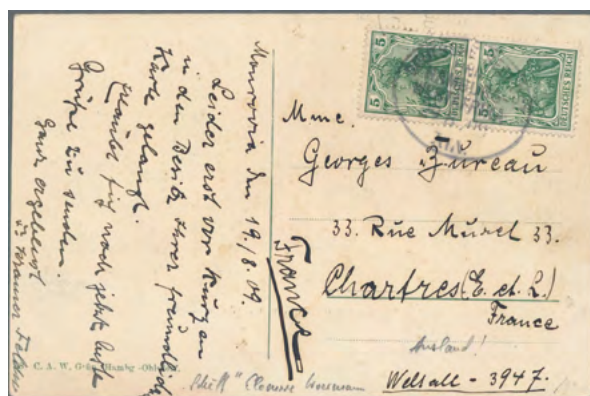 Monrovia den 19./8.09.
Leider erst vor kurzem
in den Besitz Ihrer freundlichen
Karte gelangt.
erlaubt sich noch jetzt beste
Grüße zu senden.
ganz ergebenst
5
5
DEUTSCHES REICH
Mme.
Georges Jureau
33. Rue Muret 33.
Chartres (E. et. L.)
France
France
Ausland!
Weltall - 3947.
C. A. W.
Hambg
"